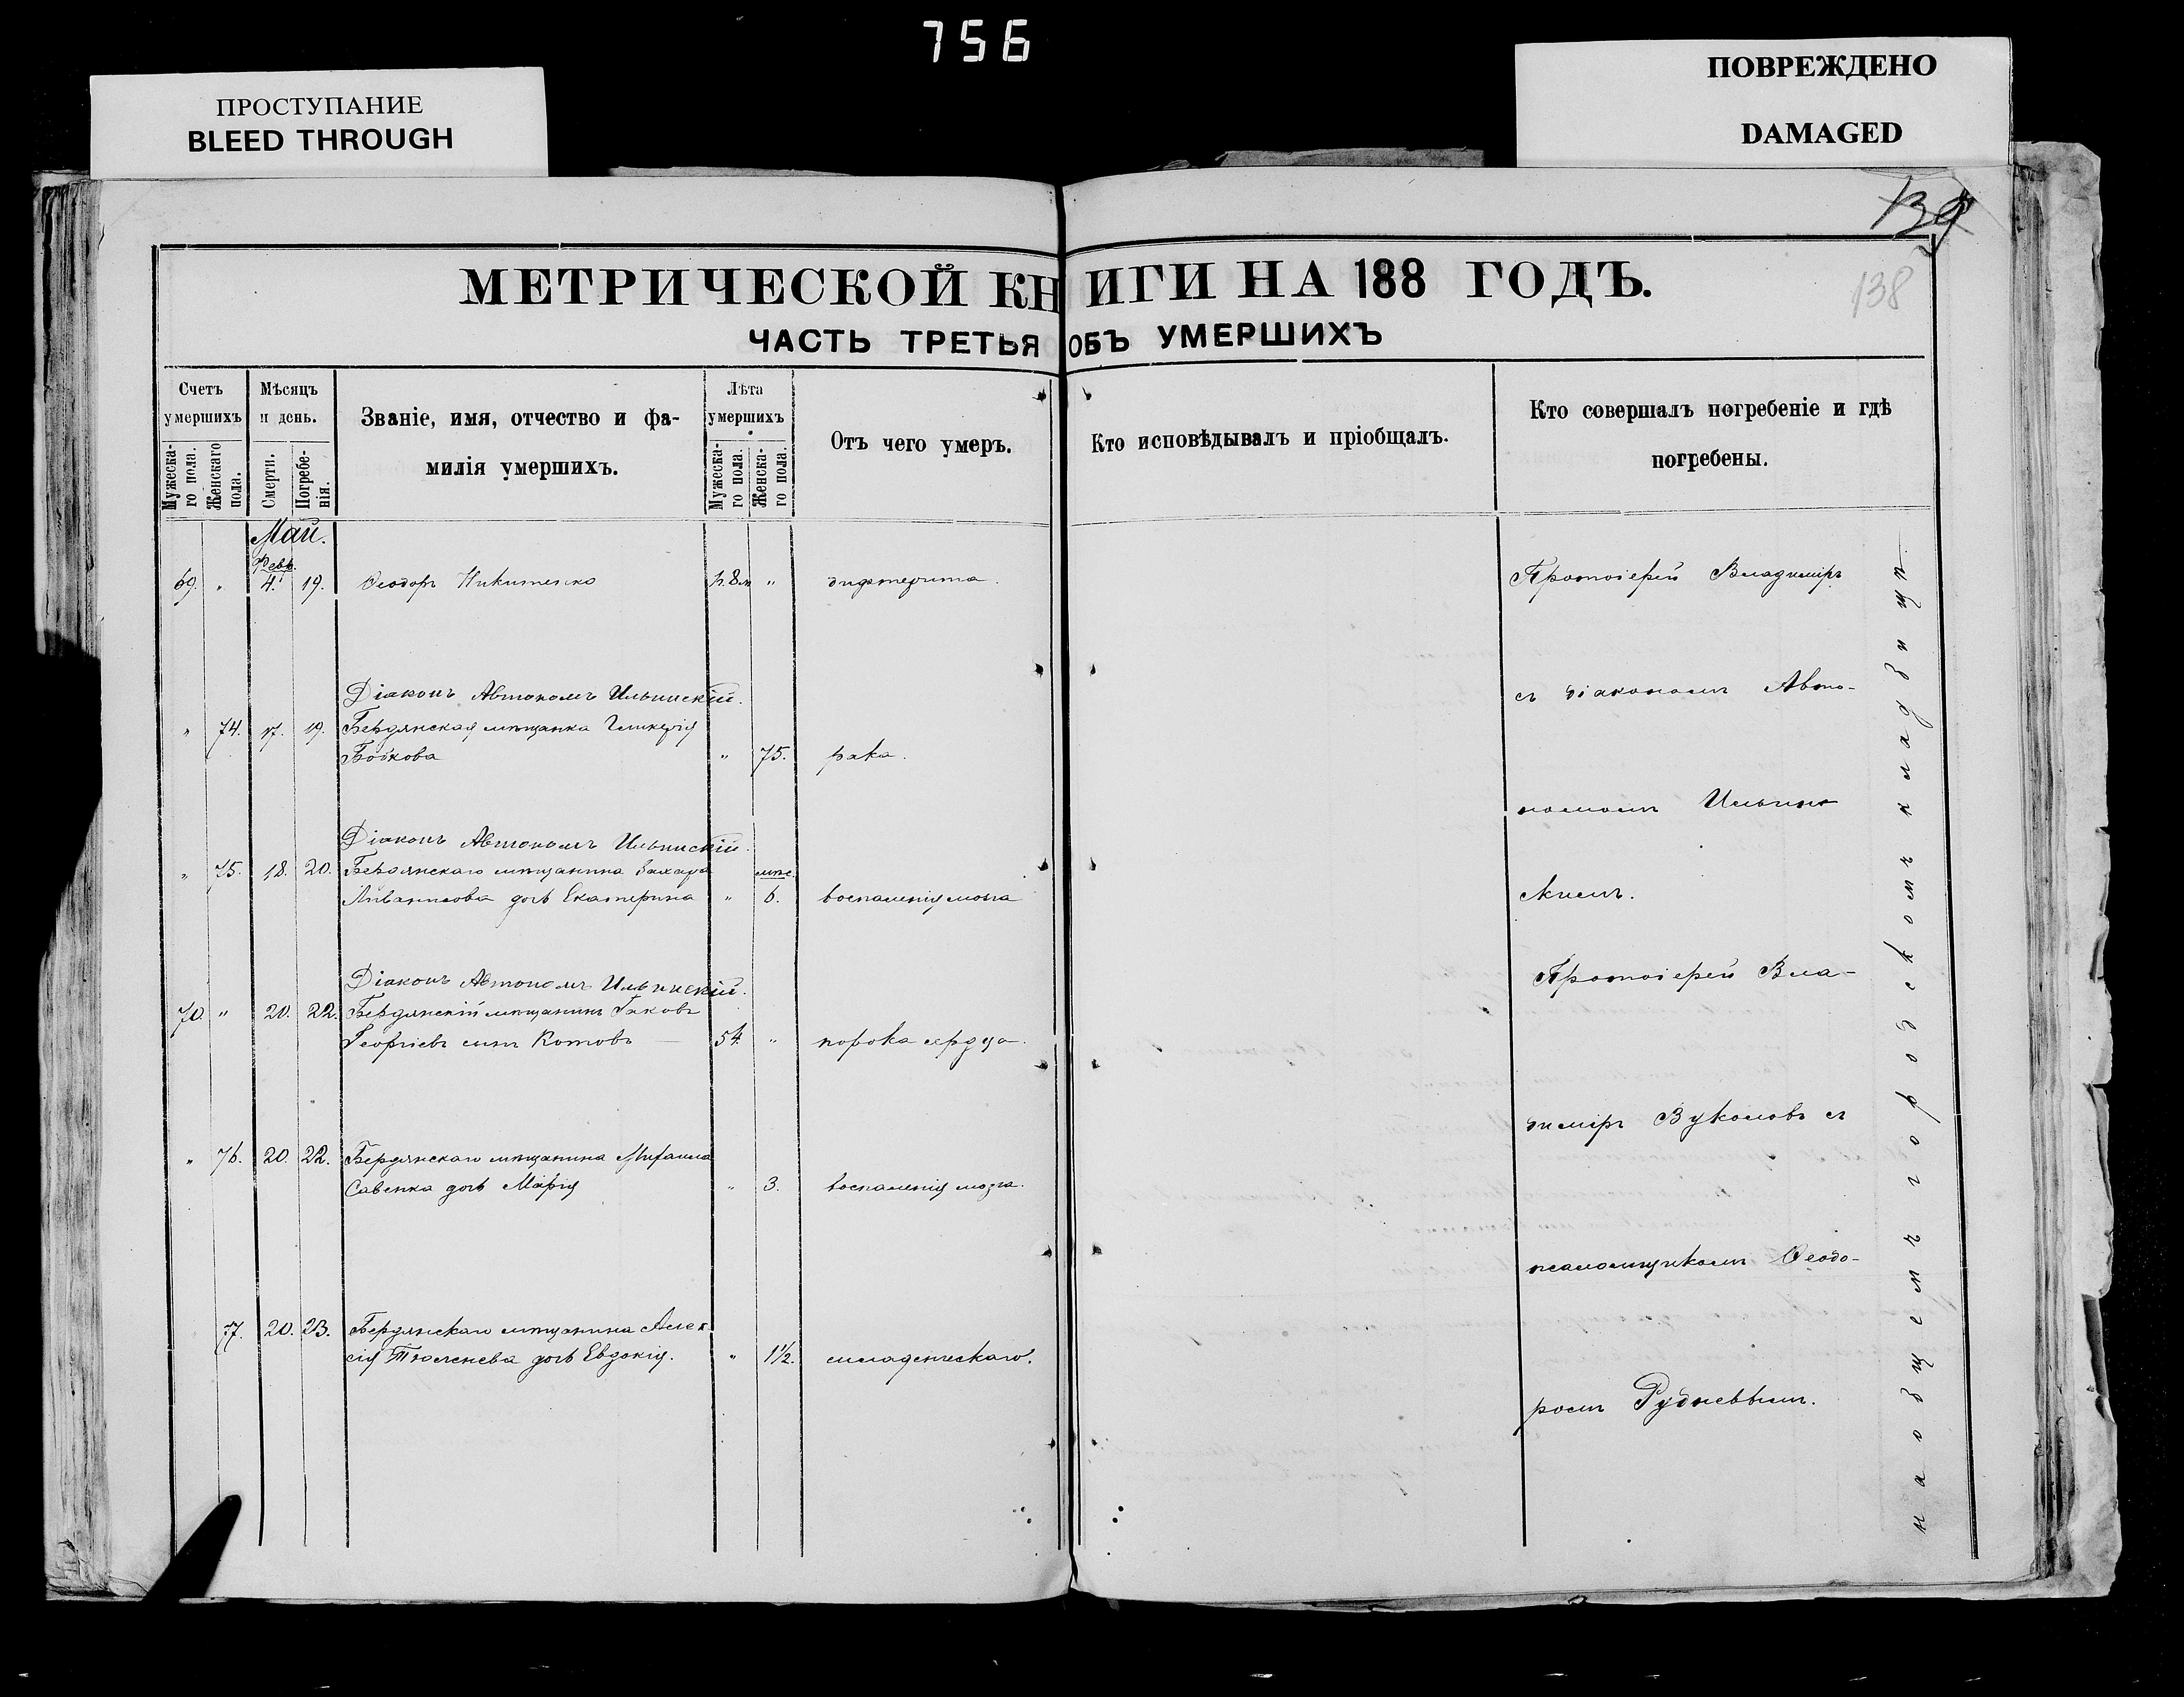 756
ПРОСТУПАНИЕ
BLEED THROUGH
ПОВРЕЖДЕНО
DAMAGED
139
138
МЕТРИЧЕСКОЙ КНИГИ НА 188 ГОДЪ.
ЧАСТЬ ТРЕТЬЯ ОБЪ УМЕРШИХЪ
Счетъ умершихъ
Мужеска-го пола.
Женскаго пола.
Мѣсяцъ и день.
Смерти.
Погребе-нія.
Званіе, имя, отчество и фа-
милія умершихъ.
Лѣта умершихъ
Мужеска-го пола.
Женска-го пола.
Отъ чего умеръ.
Кто исповѣдывалъ и пріобщалъ.
Кто совершалъ погребеніе и гдѣ
погребены.
Май.
Февр.
69. " 4. 19. Ѳеодоръ Никитенко " дифтерита.
Діаконъ Автономъ Ильинскій.
" 74. 17. 19. Бердянская мѣщанка Гликерія
Бойкова " 75. рака.
Діаконъ Автономъ Ильинскій.
" 75. 18. 20. Бердянскаго мѣщанина Захара мѣс.
дочь Екатерина " 6. воспаленія мозга
Діаконъ Автономъ Ильинскій.
70. " 20. 22. Бердянскій мѣщанинъ Іаковъ
Георгіевъ сынъ Котовъ 54. " порока сердца.
" 76. 20. 22. Бердянскаго мѣщанина Михаила
Савенка дочь Марія " 3. воспаленія мозга.
77. 20. 23. Бердянскаго мѣщанина Алек
сія Тюленева дочь Евдокія. " 1½. младенческаго.
Протоіерей Владиміръ
съ діакономъ Авто-
номомъ Ильин
скимъ.
Протоіерей Вла-
диміръ Вуколовъ съ
псаломщикомъ Ѳеодо-
ромъ Рудневымъ.
на общемъ городскомъ кладбищѣ.